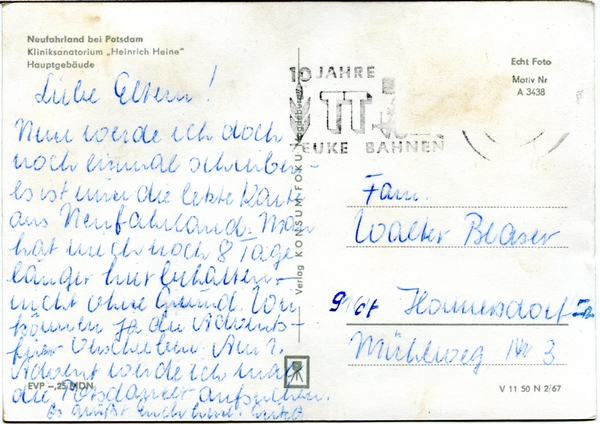 Neufahrland bei Potsdam
Kliniksanatorium „Heinrich Heine"
Hauptgebäude
Liebe Eltern!
Nun werde ich doch
noch einmal schreiben –
es ist nun die letzte Karte
aus Neufahrland. Man
hat mich noch 8 Tage
länger hier behalten –
nicht ohne Grund. Wir
können ja die Advents-
feier verschieben. Am 1.
Advent werde ich mal
die Potsdamer aufsuchen.
Es grüßt euch
EVP –,25 MDN
Verlag KONSUM FOKU Magdeburg
10 JAHRE
TT
EUKE BAHNEN
Echt Foto
Motiv Nr
A 3438
Fam.
Walter Blaser
Mühlweg 3
V 11 50 N 2/67